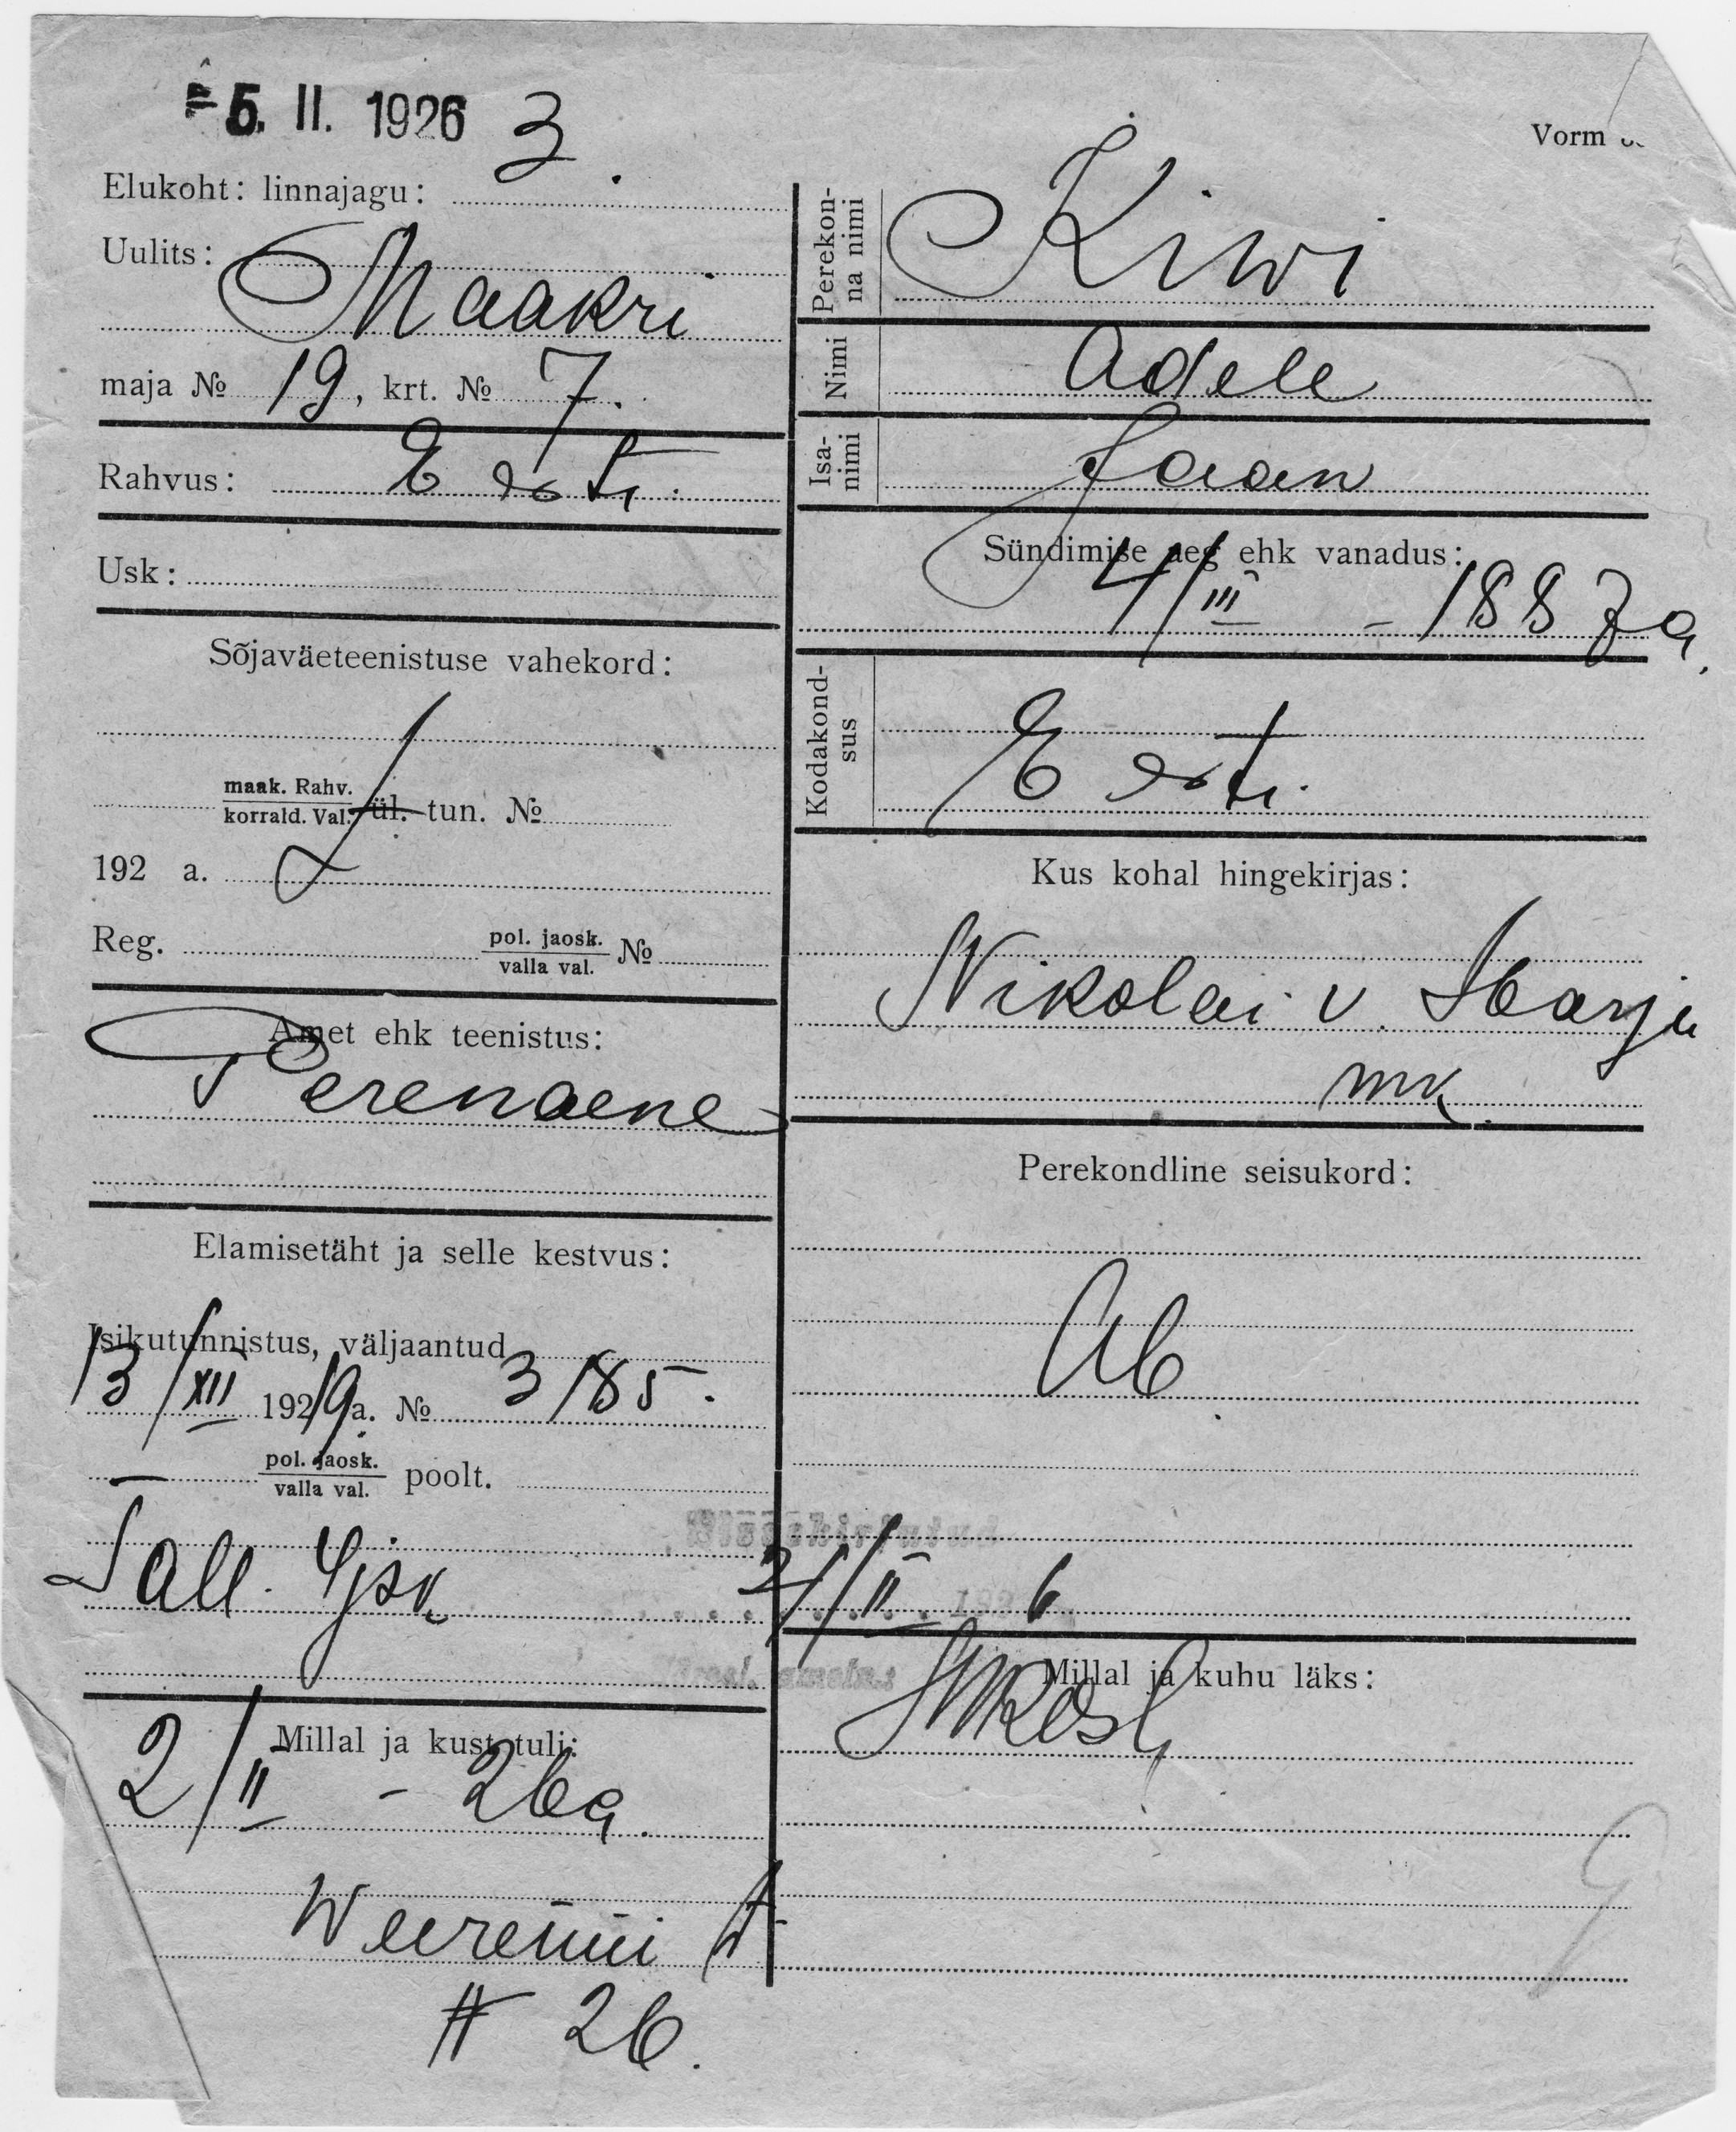 5. II. 1926
3.
Vorm
Elukoht: linnajagu:
Uulits:
Maakri
maja № 19, krt. № 7.
Rahvus: Eesti.
Usk:
Sõjaväeteenistuse vahekord:
maak. Rahv.
korrald. Val. ül. tun. №
192 a.
Reg. pol. jaosk. №
valla val.
Amet ehk teenistus:
Perenaene
Elamisetäht ja selle kestvus:
Isikutunnistus, väljaantud
13/XII 1919a. № 3185.
pol. jaosk.
valla val. poolt.
Tall. 4jsk
Millal ja kust tuli:
2/II - 26a.
Weerenni t
# 26.
Perekon-
na nimi
Kiwi
Nimi
Adele
Isa-
nimi
Jaan
Sündimise aeg ehk vanadus:
4/III - 1887a.
Kodakond-
sus
Eesti.
Kus kohal hingekirjas:
Nikolai v. Harju
mk.
Perekondline seisukord:
Ab
Sissekirjutud
/II 192 6
Millal ja kuhu läks: